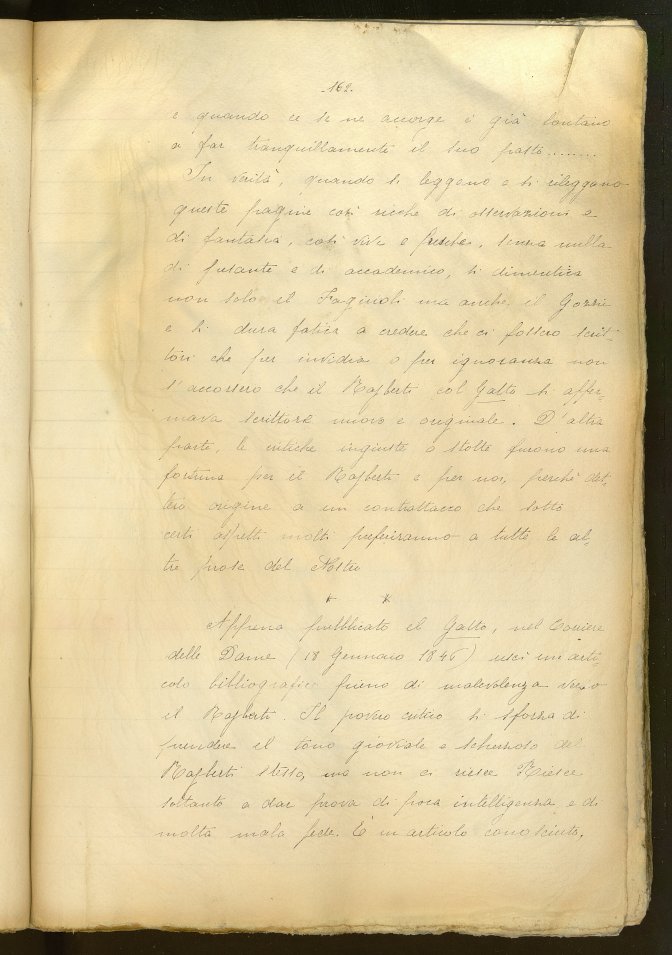 .162.
e quando ce se ne accorge è già lontano
a far tranquillamente il suo pasto........
In verità, quando si leggono e si rileggono
queste pagine così ricche di osservazioni e
di fantasia, così vive e fresche, senza nulla
di pesante e di accademico, si dimentica
non solo il Fagiuoli ma anche il Gozzi
e si dura fatica a credere che ci fossero scrit-
tori che per invidia o per ignoranza non
s'accorsero che il Rajberti col Gatto si affer-
mava scrittore nuovo e originale. D'altra
parte, le critiche ingiuste o stolte furono una
fortuna per il Rajberti e per noi, perchè det-
tero origine a un contrattacco che sotto
certi aspetti molti preferiranno a tutte le al-
tre prose del Nostro
* *
Appena pubblicato il Gatto, nel Corriere
delle Dame (18 Gennaio 1846) uscì un arti-
colo bibliografico pieno di malevolenza verso
il Rajberti. Il povero critico si sforza di
prendere il tono gioviale e scherzoso del
Rajberti stesso, ma non ci riesce Riesce
soltanto a dar prova di poca intelligenza e di
molta mala fede. È un articolo conosciuto,